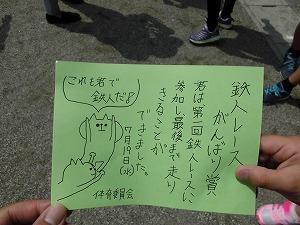 鉄人レース
がんばり賞
君は第一回鉄人レースに
参加し、最後まで走り
きることが
できました。
7月19日(水)
体育委員会
これも君で
鉄人だ!